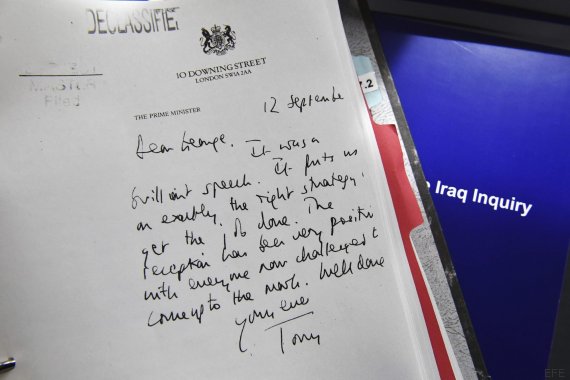 DECLASSIFIED
10 DOWNING STREET
LONDON SW1A 2AA
THE PRIME MINISTER
12 September
Dear George. It was a
brilliant speech. It puts us
on exactly the right strategy to
get the job done. The
reception has been very positive
with everyone now challenged to
come up to the mark. Well done
Yours ever
Tony
Filed
7.2
Iraq Inquiry
EFE